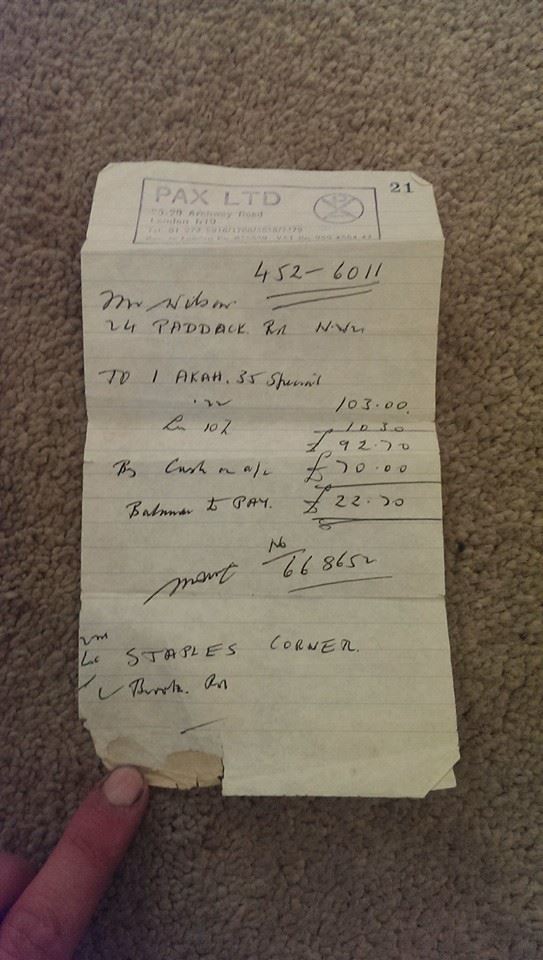 21
PAX LTD
Archway Road
London N19
452-6011
Mr Wilson
24 PADDACK Rd N.W.
TO 1 AKAH. 35 Special
.22 103.00
10% 10 30
£ 92.70
By Cash on a/c £ 70.00
Balance to PAY. £ 22.70
No
668652
STAPLES CORNER.
Brook. Rd